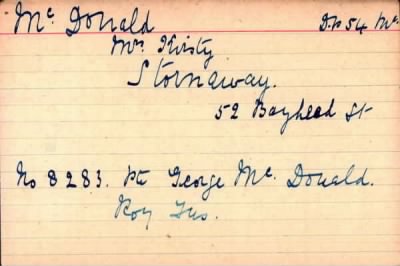 Mc Donald D.P. 54 Mc.
Mrs Kirsty
Stornaway.
52 Bayhead St
No 8283. Pte George Mc. Donald.
Roy Fus.